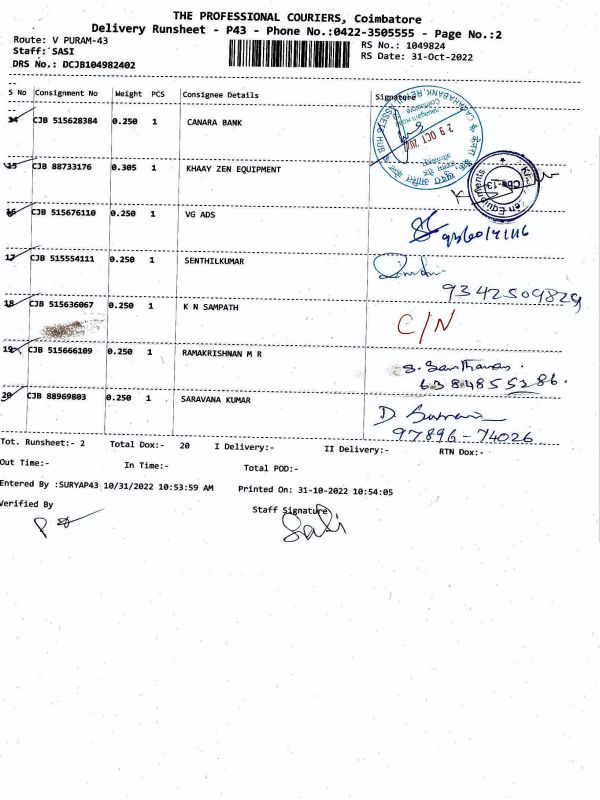 THE PROFESSIONAL COURIERS, Coimbatore
Delivery Runsheet - P43 - Phone No.:0422-3505555 - Page No.:2
Route: V PURAM-43
RS No.: 1049824
Staff: SASI
RS Date: 31-Oct-2022
DRS No.: DCJB104982402
S No Consignment No Weight PCS Consignee Details Signature
14 CJB 515628384 0.250 1 CANARA BANK
29 OCT
15 CJB 88733176 0.305 1 KHAAY ZEN EQUIPMENT
Cbe-13
16 CJB 515676110 0.250 1 VG ADS
17 CJB 515554111 0.250 1 SENTHILKUMAR
18 CJB 515636067 0.250 1 K N SAMPATH
C/N
19 CJB 515666109 0.250 1 RAMAKRISHNAN M R
6384855286.
20 CJB 88969803 0.250 1 SARAVANA KUMAR
97896-74026
Tot. Runsheet:- 2 Total Dox:- 20 I Delivery:- II Delivery:- RTN Dox:-
Out Time:- In Time:- Total POD:-
Entered By :SURYAP43 10/31/2022 10:53:59 AM Printed On: 31-10-2022 10:54:05
Verified By
Staff Signature
Sasi